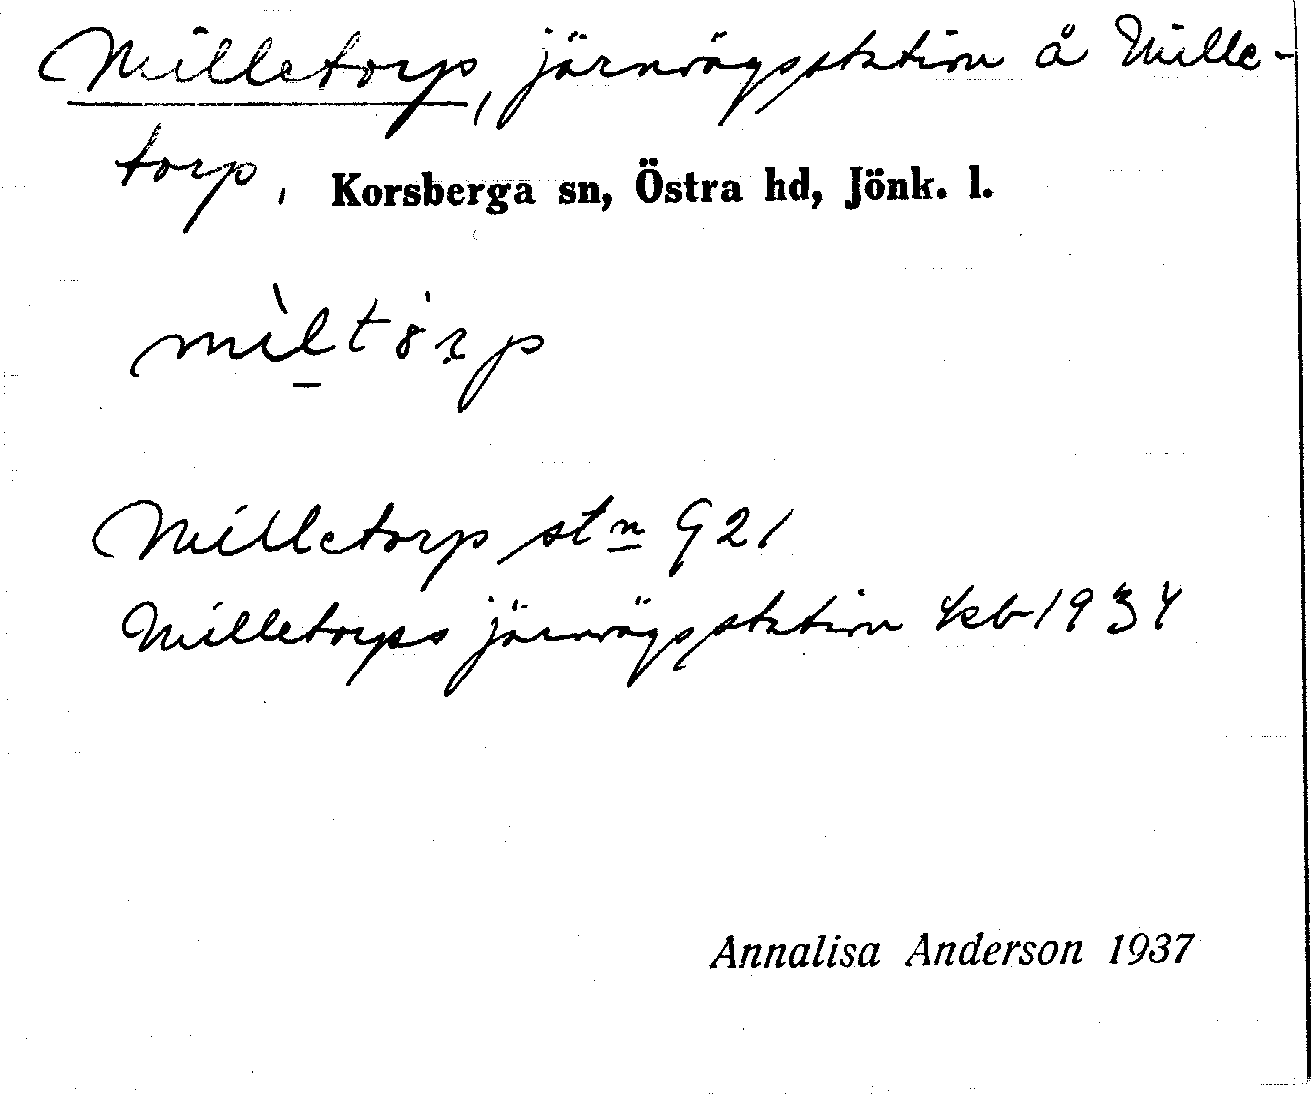 Milletorp, järnvägsstation å Mille-
torp, Korsberga sn, Östra hd, Jönk. l.
Milletorp stn G 21
Milletorps järnvägsstation kb 1934
Annalisa Anderson 1937